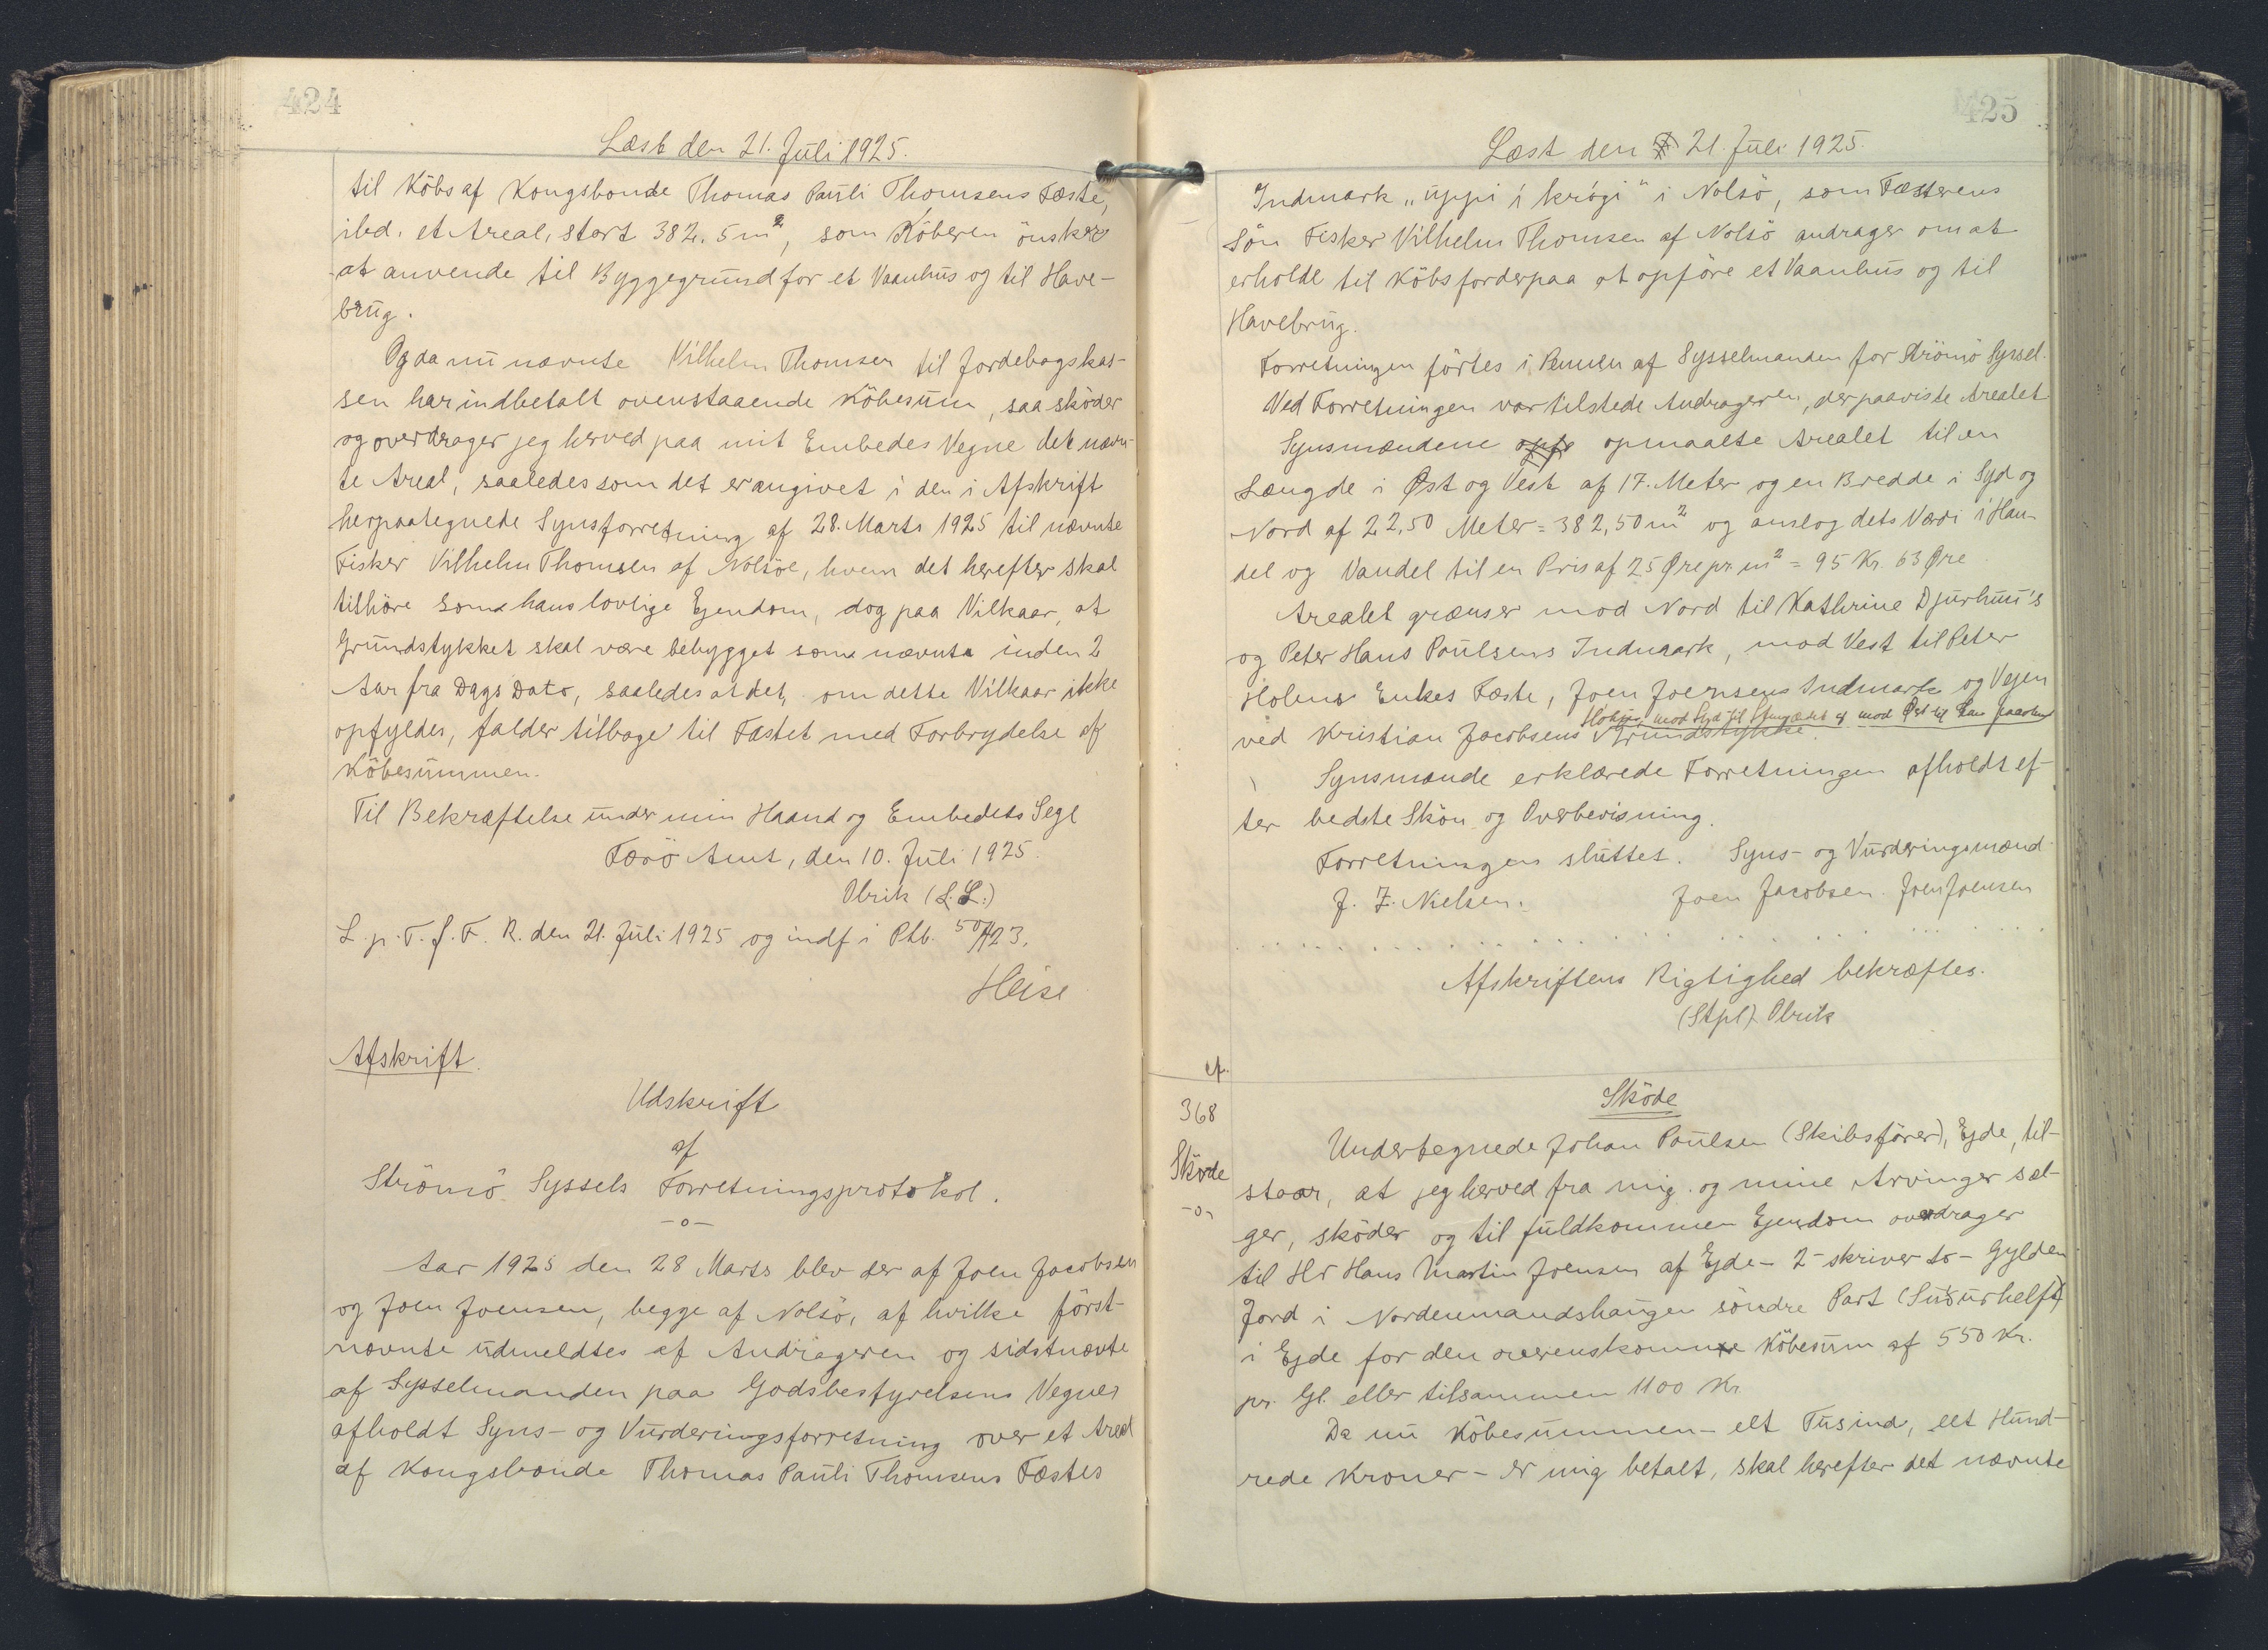 424
Læst den 21. Juli 1925.
til Köbs af Kongsbonde Thomas Pauli Thomsens Fæste,
ibd. et Areal, stort 382.5 m², som Köberen önsker
at anvende til Byggegrund for et Vaanhus og til Have-
brug.
Og da nu nævnte Vilhelm Thomsen til Jordebogskas-
sen har indbetalt ovenstaaende Köbesum, saa sköder
og overdrager jeg herved paa mit Embedes Vegne det nævn-
te Areal, saaledes som det er angivet i den i Afskrift
herpaategnede Synsforretning af 28. Marts 1925 til nævnte
Fisker Vilhelm Thomsen af Nolsöe, hvem det herefter skal
tilhöre som hans lovlige Ejendom, dog paa Vilkaar, at
Grundstykket skal være bebygget som nævnte inden 2
Aar fra Dags Dato, saaledes at det, om dette Vilkaar ikke
opfyldes, falder tilbage til Fæstet med Forbrydelse af
Köbesummen.
Til Bekræftelse under min Haand og Embedets Segl
Færö Amt, den 10. Juli 1925.
Olrik (L.S.)
L. p. T. f. F. R. den 21. Juli 1925 og indf i Ptb. 50/423.
Heise
Afskrift.
Udskrift
af
Strömö Syssels Forretningsprotokol.
-o-
Aar 1925 den 28 Marts blev der af Joen Jacobsen
og Joen Joensen, begge af Nolsö, af hvilke först-
nævnte udmeldtes af Andrageren og sidstnævte
af Sysselmanden paa Godsbestyrelsens Vegner
afholdt Syns- og Vurderingsforretning over et Areal
af Kongsbonde Thomas Pauli Thomsens Fæstes
425
Læst den 21. Juli 1925.
Indmark "uppi í krógi" i Nolsö, som Fæsterens
Sön Fisker Vilhelm Thomsen af Nolsö andrager om at
erholde til Köbs for derpaa at opföre et Vaanhus og til
Havebrug.
Forretningen förtes i Pennen af Sysselmanden for Strömö Syssel.
Ved Forretningen var tilstede Andrageren, der paaviste Arealet
Synsmændene opmaalte Arealet til en
Længde i Øst og Vest af 17. Meter og en Bredde i Syd og
Nord af 22,50 Meter = 382,50 m² og anslog dets Værdi i Han-
del og Vandel til en Pris af 25 Øre pr. m² = 95 Kr. 63 Øre
Arealet grænser mod Nord til Kathrine Djurhuus's
og Peter Hans Poulsens Indmark, mod Vest til Peter
Holms Enkes Fæste, Joen Joensens Indmark og Vejen
mod Syd til Stengædet og mod Øst til
ved Kristian Jacobsens Grundstykke.
Synsmænde erklærede Forretningen afholdt ef-
ter bedste Skön og Overbevisning.
Forretningen sluttet. Syns- og Vurderingsmænd
J. F. Nielsen. Joen Jacobsen. Joen Joensen
Afskriftens Rigtighed bekræftes.
(Stpl) Olrik
368
Sköde
-o-
Sköde
Undertegnede Johan Poulsen (Skibsförer), Ejde, til-
staar, at jeg herved fra mig og mine Arvinger sæl-
ger, sköder og til fuldkommen Ejendom overdrager
til Hr Hans Martin Joensen af Ejde - 2 - skriver to - Gylden
Jord i Nordenmandshaugen söndre Part (Suðurhelft)
i Ejde for den overenskomne Köbesum af 550 Kr.
pr. Gl. eller tilsammen 1100 Kr
Da nu Köbesummen - elt Tusind, eet Hund-
rede Kroner - er mig betalt, skal herefter det nævnte